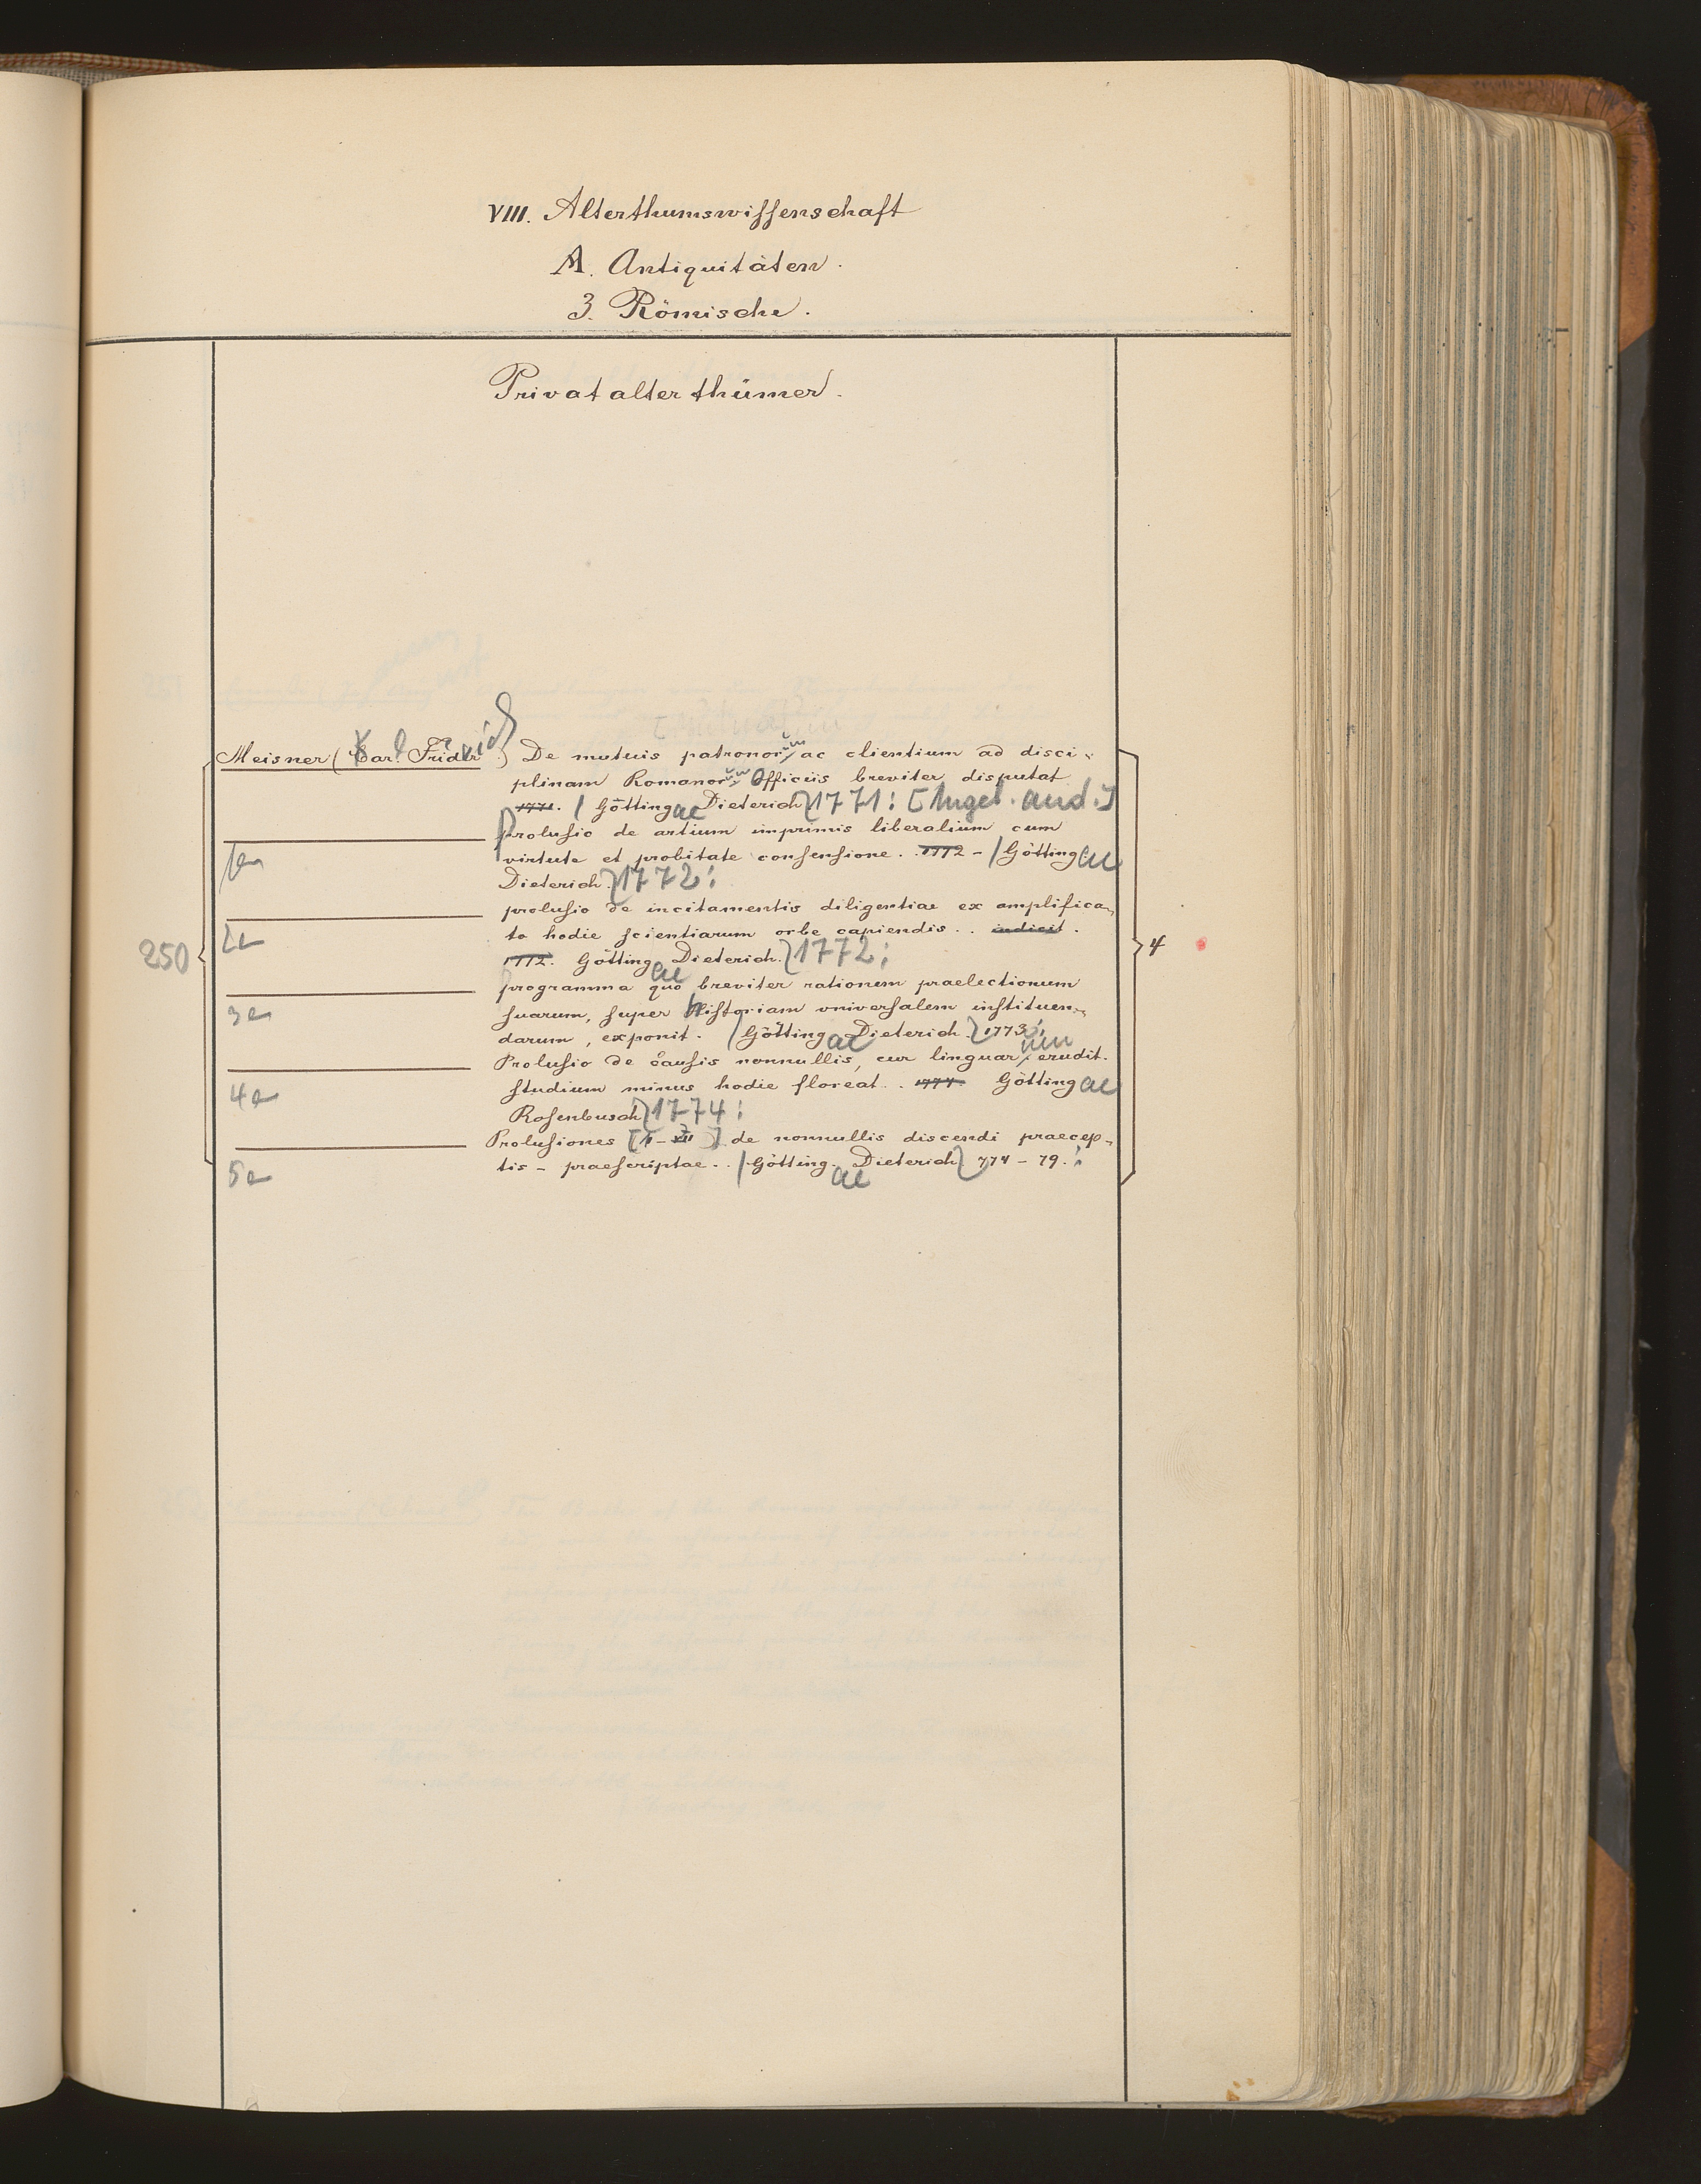 VIII. Alterthumswissenschaft
A. Antiquitäten.
3. Römische.
Privatalterthümer.
Meisner (Karl Friderich) De mutuis patronorum ac clientium ad disci-
plinam Romanorum Officiis breviter disputat
1771. / Göttingae Dieterich 1771: [Angeb. and.]
Prolusio de artium imprimis liberalium cum
1 virtute et probitate consensione. . 1772 - / Göttingae
Dieterich. 1772:
prolusio de incitamentis diligentiae ex amplifica-
2 to hodie scientiarum orbe capiendis. . indicit.
250
4
1772. Göttingae Dieterich. 1772:
programma quo breviter rationem praelectionum
3 suarum, super historiam vniversalem instituen-
darum, exponit. / Göttingae Dieterich. 1773:
Prolusio de causis nonnullis, cur linguarum erudit.
4 studium minus hodie floreat. . 1774. Göttingae
Rosenbusch 1774:
Prolusiones [I - VII] de nonnullis discendi praecep-
5 tis - praescriptae. . / Göttingae Dieterich 774 - 79.: